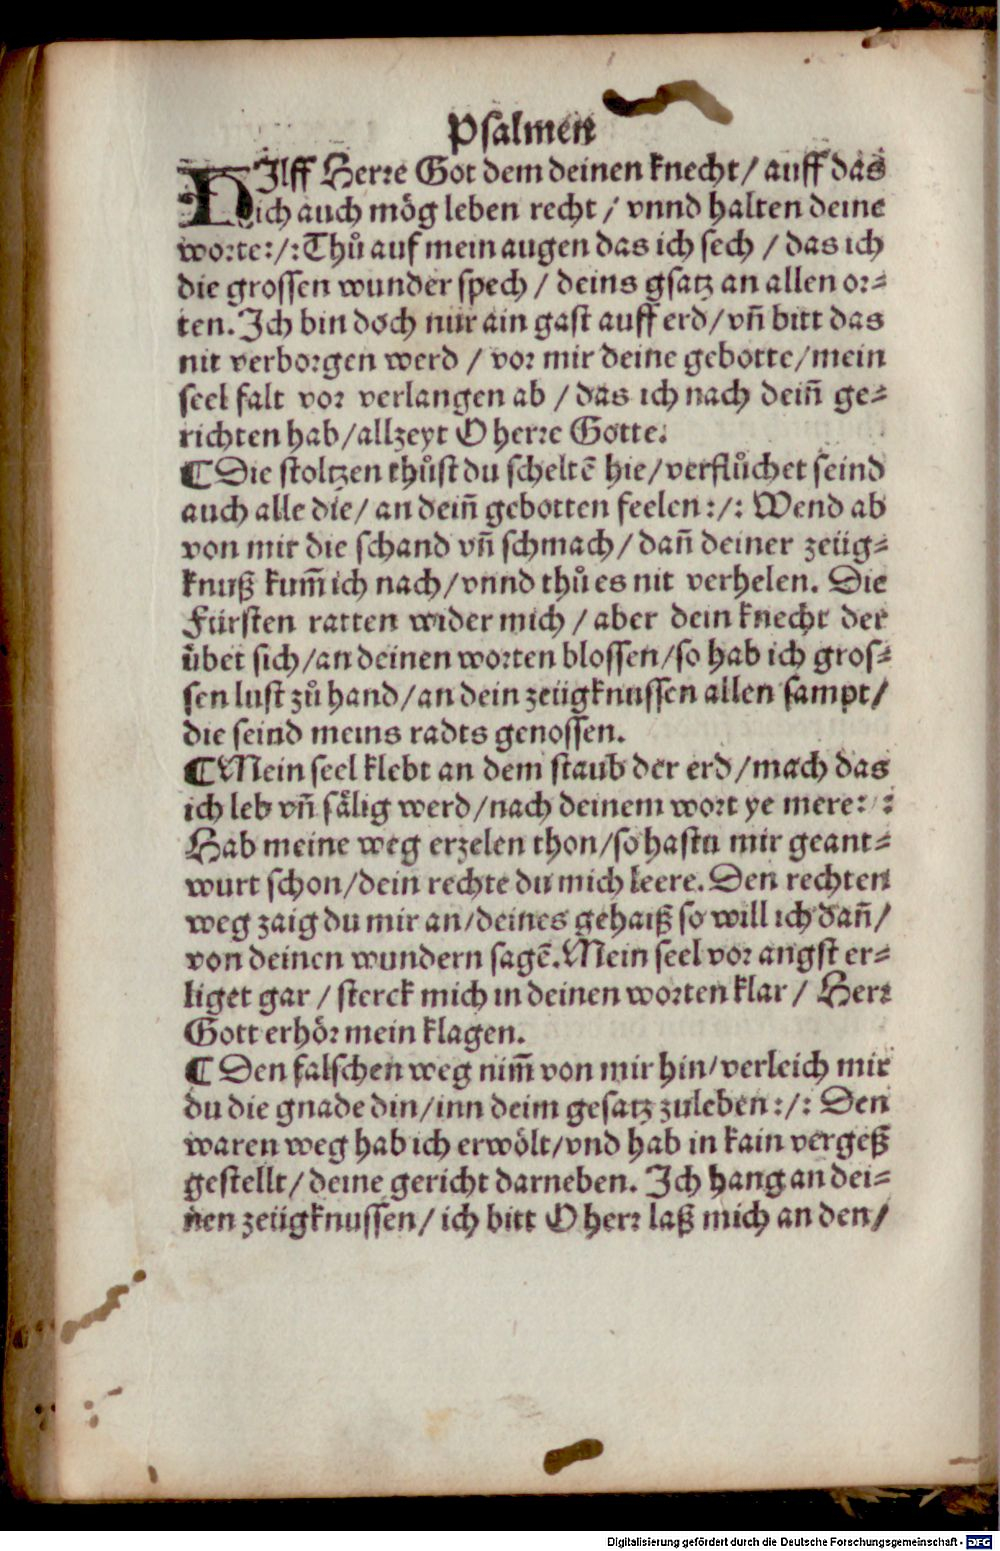 Psalmen
HIlff Herre Got dem deinen knecht / auff das
ich auch mög leben recht / vnnd halten deine
worte:/: Thů auf mein augen das ich sech / das ich
die grossen wunder spech / deins gsatz an allen or⸗
ten. Ich bin doch nur ain gast auff erd / vn̄ bitt das
nit verborgen werd / vor mir deine gebotte / mein
seel falt vor verlangen ab / das ich nach dein̄ ge⸗
richten hab / allzeyt O herre Gotte.
¶ Die stoltzen thůst du scheltē hie / verflůchet seind
auch alle die / an dein̄ gebotten feelen:/: Wend ab
von mir die schand vn̄ schmach / dan̄ deiner zeüg⸗
knuß kum̄ ich nach / vnnd thů es nit verhelen. Die
Fürsten ratten wider mich / aber dein knecht der
übet sich / an deinen worten blossen / so hab ich gros⸗
sen lust zů hand / an dein zeügknussen allen sampt /
die seind meins radts genossen.
¶ Mein seel klebt an dem staub der erd / mach das
ich leb vn̄ sälig werd / nach deinem wort ye mere:/:
Hab meine weg erzelen thon / so hastu mir geant⸗
wurt schon / dein rechte du mich leere. Den rechten
weg zaig du mir an / deines gehaiß so will ich dan̄ /
von deinen wundern sagē. Mein seel vor angst er⸗
liget gar / sterck mich in deinen worten klar / Herr
Gott erhör mein klagen.
¶ Den falschen weg nim̄ von mir hin / verleich mir
du die gnade din / inn deim gesatz zuleben:/: Den
waren weg hab ich erwölt / vnd hab in kain vergeß
gestellt / deine gericht darneben. Ich hang an dei⸗
nen zeügknussen / ich bitt O herr laß mich an den /
Digitalisierung gefördert durch die Deutsche Forschungsgemeinschaft - DFG